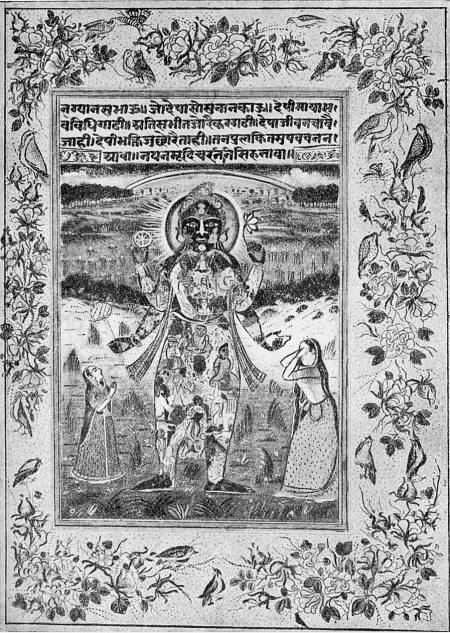 नग्यानसुभाऊ॥जोदेषासोसुनानकाऊ॥देषीमायास
बविधिगाढी॥अतिसभीतजोरेकरठाढी॥देषाजीवनचावै
जाही॥देषीभक्तिजुछोरैताही॥तनपुलकितमुषवचनन
आवा॥नयनमूदिचरननिसिरुनावा॥